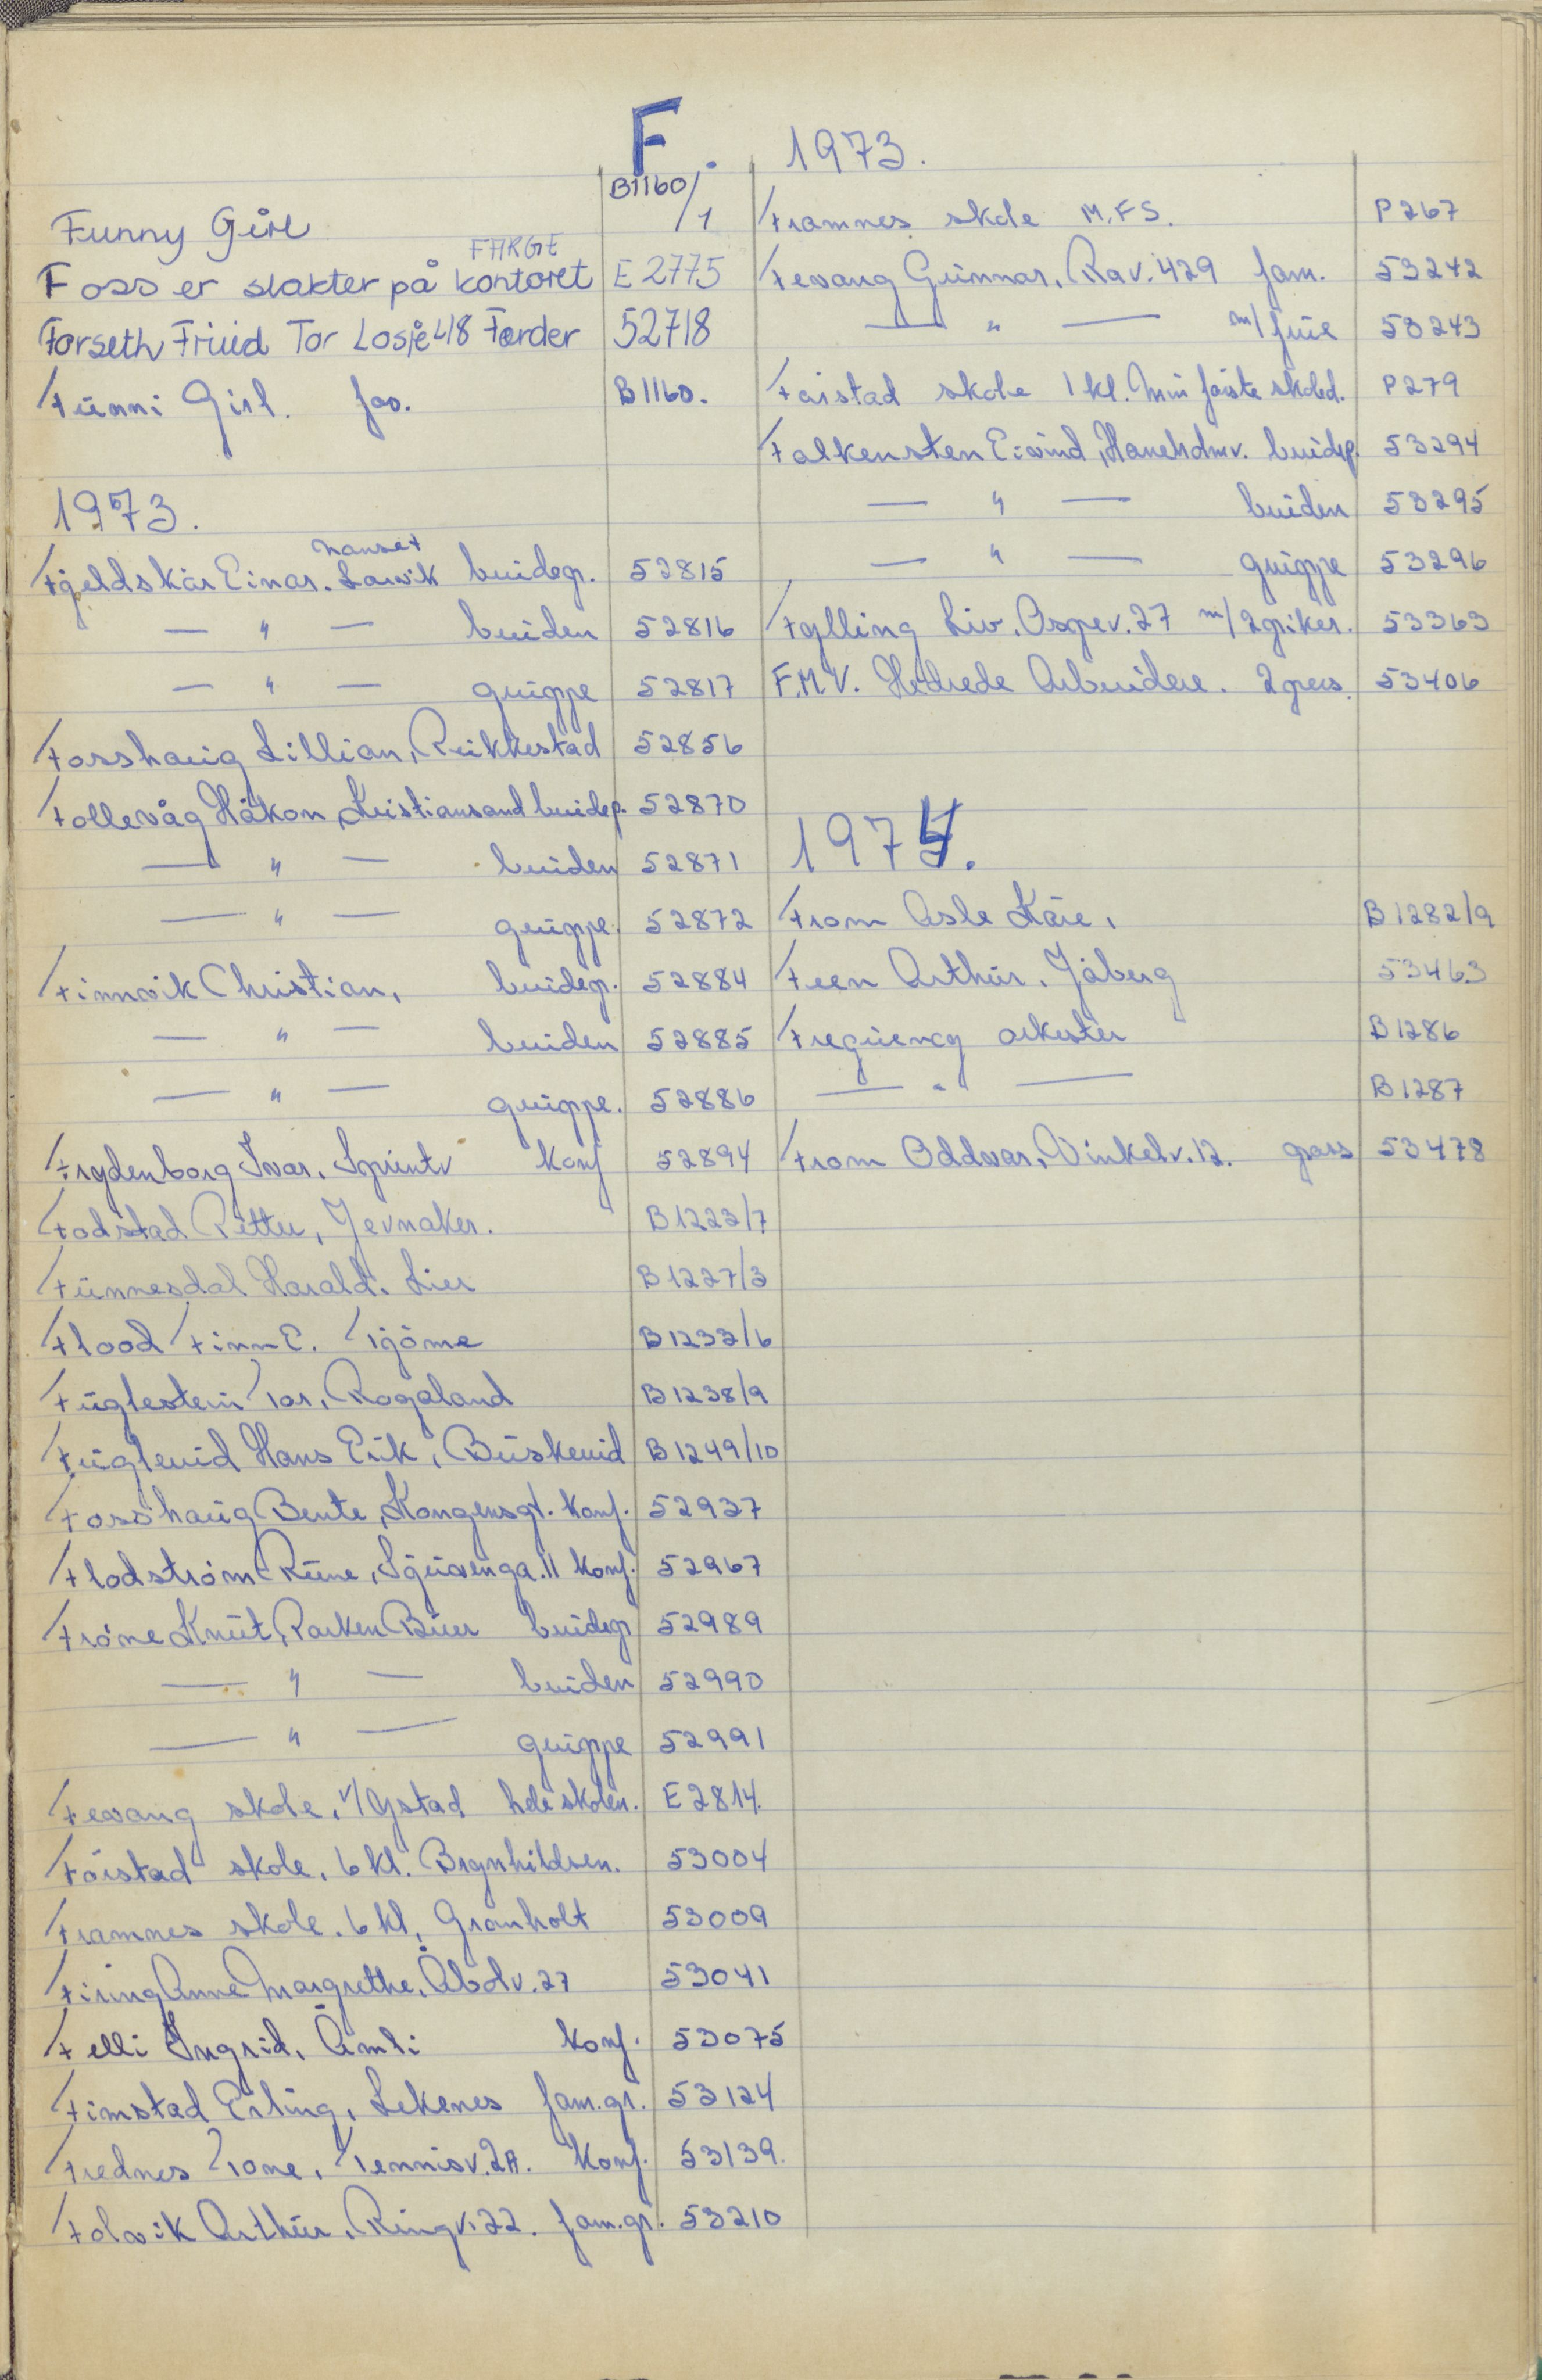 F.
Funny Girl B1160/1
FARGE
Foss er slakter på kontoret E 2775
Forseth Friud Tor Losje 48 Færder 52718
Funni Girl. foo. B1160.
1973.
Nanset
Fjeldskår Einar. Larvik brudep. 52815
— " — bruden 52816
— " — gruppe 52817
Fosshaug Lillian, Reikkestad 52856
Follevåg Håkon, Kristiansand brudep. 52870
— " — bruden 52871
— " — gruppe. 52872
Finnvik Christian, brudep. 52884
— " — bruden 52885
— " — gruppe. 52886
Frydenborg Ivar, Sprintv Konf 52894
Fodstad Petter, Jevnaker. B1223/7
Funnesdal Harald. Lier B1227/3
Flood Finn E. Tjöme B1233/6
Fuglestein Tor, Rogaland B1238/9
Fuglerud Hans Erik, Buskerud B1249/10
Fosshaug Bente, Kongensgt. Konf. 52937
Flodström Rune, Sguvenga. 11 Konf. 52967
Fröne Knut, Parken Buer brudep 52989
— " — bruden 52990
— " — gruppe 52991
Fevang skole, v/Ystad hele skolen. E 2814.
Förstad skole, 6 kl. Brynhildsen. 53004
Framnes skole. 6 kl, Granholt 53009
Firing Anne Margrethe, Åbolv. 27 53041
Felli Ingrid, Åmli Konf. 53075
Fimstad Erling, Lekenes fam.gr. 53124
Frednes Tone, Tennisv. 2A. Konf. 53139.
Folvik Arthur, Ringv. 22. fam.gr. 53210
1973.
Framnes skole M.F.S. P 267
Fevang Gunnar, Rav. 429 fam. 53242
— " — m/frue 53243
Forstad skole 1 kl. Min første skoled. P279
Falkensten Eivind, Haneholmv. brudep. 53294
— " — bruden 53295
— " — gruppe 53296
Fylling Liv, Ospev. 27 m/2 piker. 53363
F.M.V. Hedrede Arbeidere. 2 pers. 53406
1974.
From Asle Kåre, B1282/9
Feen Arthur, Jåberg 53463
Frequency orkester B1286
— " — B1287
From Oddvar, Vinkelv. 12. pass 53478